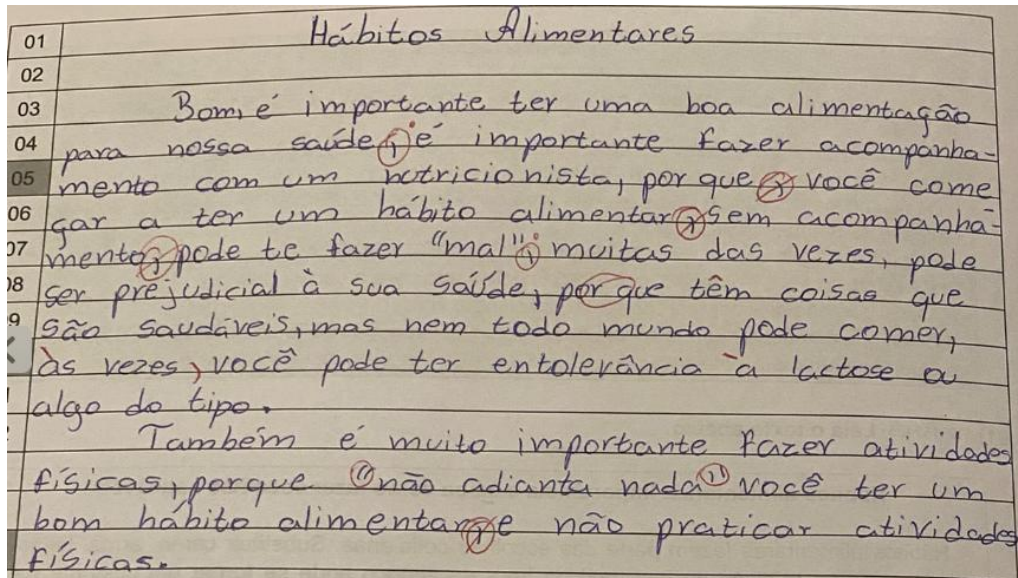 01 Hábitos Alimentares
02
03 Bom, é importante ter uma boa alimentação
04 para nossa saúde, é importante fazer acompanha-
05 mento com um nutricionista, por que, você come
06 çar a ter um hábito alimentar, sem acompanha-
07 mento, pode te fazer "mal", muitas das vezes, pode
08 ser prejudicial à sua saúde, por que têm coisas que
9 são saudáveis, mas nem todo mundo pode comer,
às vezes, você pode ter entolerância à lactose ou
algo do tipo.
Também é muito importante fazer atividades
físicas, porque "não adianta nada" você ter um
bom hábito alimentar, e não praticar atividades
físicas.